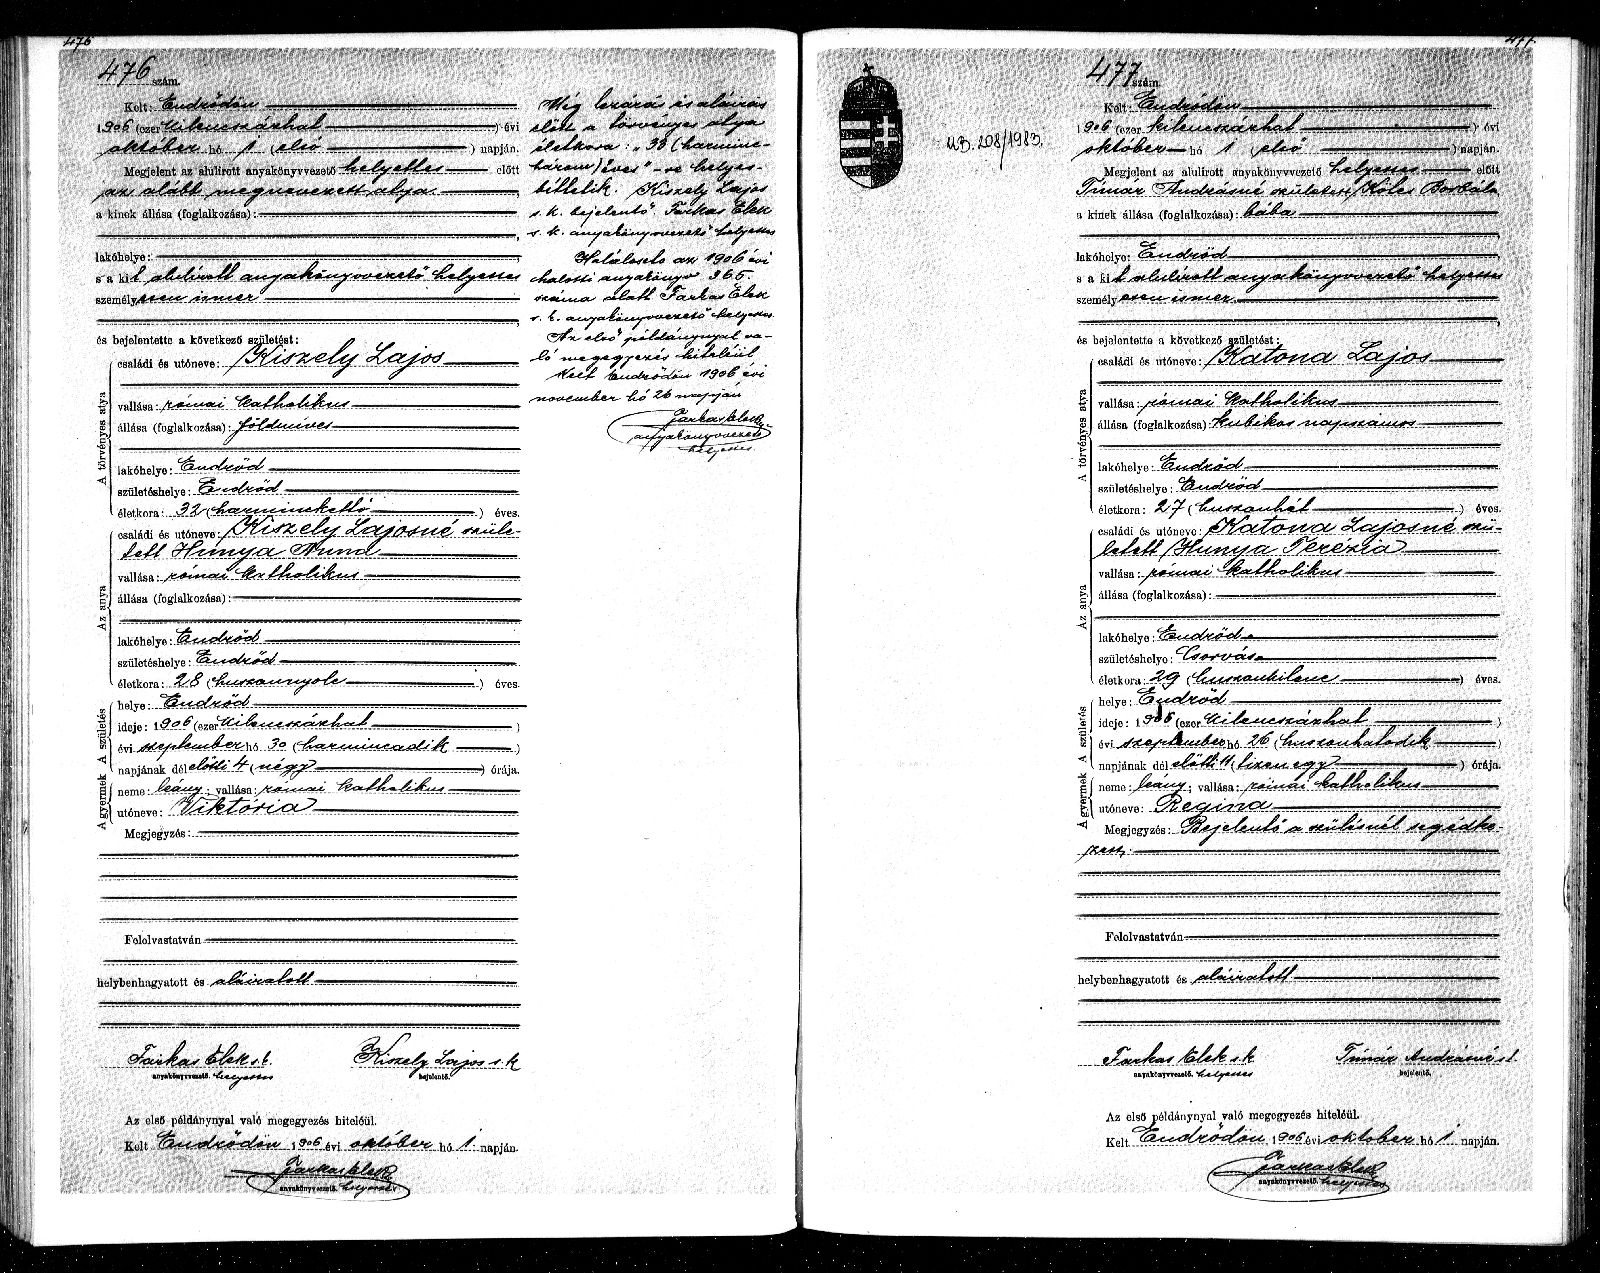 476
476 szám.
Kelt: Endrődön
1906 (ezer kilencszázhat) évi
október hó 1 (első) napján.
Megjelent az alulirott anyakönyvvezető helyettes előtt
az alább megnevezett atya
a kinek állása (foglalkozása):
lakóhelye:
s a kit alulírott anyakönyvvezető helyettes
személyesen ismer
és bejelentette a következő születést:
A törvényes atya
családi és utóneve: Kiszely Lajos
vallása: római katholikus
állása (foglalkozása): földmives
lakóhelye: Endrőd
születéshelye: Endrőd
életkora: 32 (harminckettő) éves.
Az anya
családi és utóneve: Kiszely Lajosné szüle-
tett Hunya Anna
vallása: római katholikus
állása (foglalkozása):
lakóhelye: Endrőd
születéshelye: Endrőd
életkora: 28 (huszonnyolc) éves.
A születés
helye: Endrőd
ideje: 1906 (ezer kilencszázhat)
évi szeptember hó 30 (harmincadik)
napjának dél előtti 4 (négy) órája.
A gyermek
neme: leány; vallása: római katholikus
utóneve: Viktória
Megjegyzés:
Felolvastatván
helybenhagyatott és aláiratott
Farkas Elek s. k. Kiszely Lajos s. k.
anyakönyvvezető. helyettes bejelentő.
Az első példánynyal való megegyezés hiteléül.
Kelt Endrődön 1906 évi október hó 1 napján.
Farkas Elek
anyakönyvvezető. helyettes
Még lezárás és aláirás
előtt a törvényes atya
életkora: „33 (harminc-
három) éves"-re helyes-
bittetik. Kiszely Lajos
s. k. bejelentő. Farkas Elek
s. k. anyakönyvvezető helyettes
Halálozás az 1906 évi
halotti anyakönyv 365.
száma alatt Farkas Elek
s. k. anyakönyvvezető helyettes.
Az első példánynyal va-
ló megegyezés hiteléül
Kelt Endrődön 1906 évi
november hó 26 napján
Farkas Elek
anyakönyvvezető
helyettes
477
477 szám
UB. 208/1983.
Kelt: Endrődön
1906 (ezer kilencszázhat) évi
október hó 1 (első) napján.
Megjelent az alulirott anyakönyvvezető helyettes előtt
Timár Andrásné született Kóles Borbála
a kinek állása (foglalkozása): bába
lakóhelye: Endrőd
s a kit alulírott anyakönyvvezető helyettes
személyesen ismer
és bejelentette a következő születést:
A törvényes atya
családi és utóneve: Katona Lajos
vallása: római katholikus
állása (foglalkozása): kubikos napszámos
lakóhelye: Endrőd
születéshelye: Endrőd
életkora: 27 (huszonhét) éves.
Az anya
családi és utóneve: Katona Lajosné szü-
letett Hunya Terézia
vallása: római katholikus
állása (foglalkozása):
lakóhelye: Endrőd
születéshelye: Csorvás
életkora: 29 (huszonkilenc) éves.
A születés
helye: Endrőd
ideje: 1906 (ezer kilencszázhat)
évi szeptember hó 26 (huszonhatodik)
napjának dél előtti 11 (tizenegy) órája.
A gyermek
neme: leány; vallása: római katholikus
utóneve: Regina
Megjegyzés: Bejelentő a szülésnél segédke-
zett.
Felolvastatván
helybenhagyatott és aláiratott
Farkas Elek s. k. Timár Andrásné s. k.
anyakönyvvezető. helyettes bejelentő.
Az első példánynyal való megegyezés hiteléül.
Kelt Endrődön 1906 évi október hó 1 napján.
Farkas Elek
anyakönyvvezető. helyettes